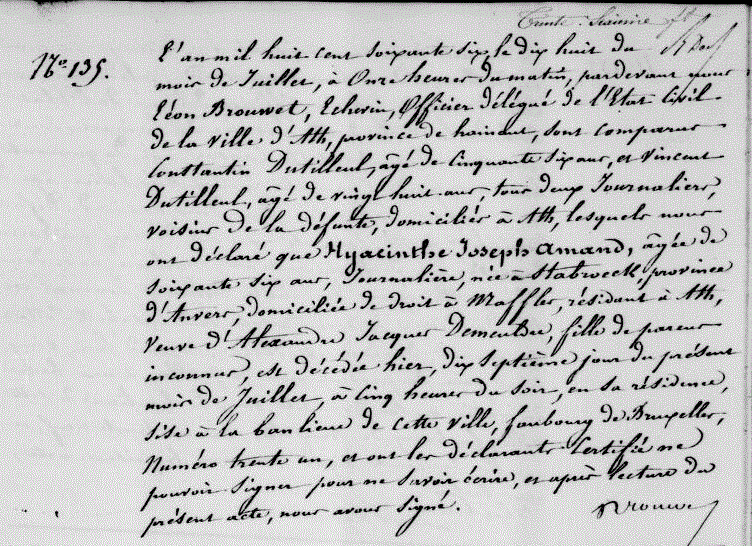 N.° 135.
L'an mil huit cent soixante six le dix huit du
mois de Juillet, à Onze heures du matin, pardevant nous
Léon Brouwet, Echevin, Officier délégué de l'Etat Civil
de la ville d'Ath, province de hainaut, sont comparus
Constantin Dutilleul, âgé de Cinquante six ans, et Vincent
Dutilleul, âgé de vingt huit ans, tous deux Journaliers,
voisins de la défunte, domiciliés à Ath, lesquels nous
ont déclaré que Hyacinthe Joseph Amand, âgée de
soixante six ans, Journalière, née à Stabroeck, province
d'Anvers, domiciliée de droit à Maffles, résidant à Ath,
Veuve d'Alexandre Jacques Demeulder, fille de parens
inconnus, est décédée hier, dix septième jour du présent
mois de Juillet, à Cinq heures du soir, en sa résidence,
sise à la banlieue de cette ville, faubourg de Bruxelles,
Numéro trente un, et ont les déclarants Certifié ne
pouvoir signer pour ne savoir écrire, et après lecture du
présent acte, nous avons signé.
Brouwet